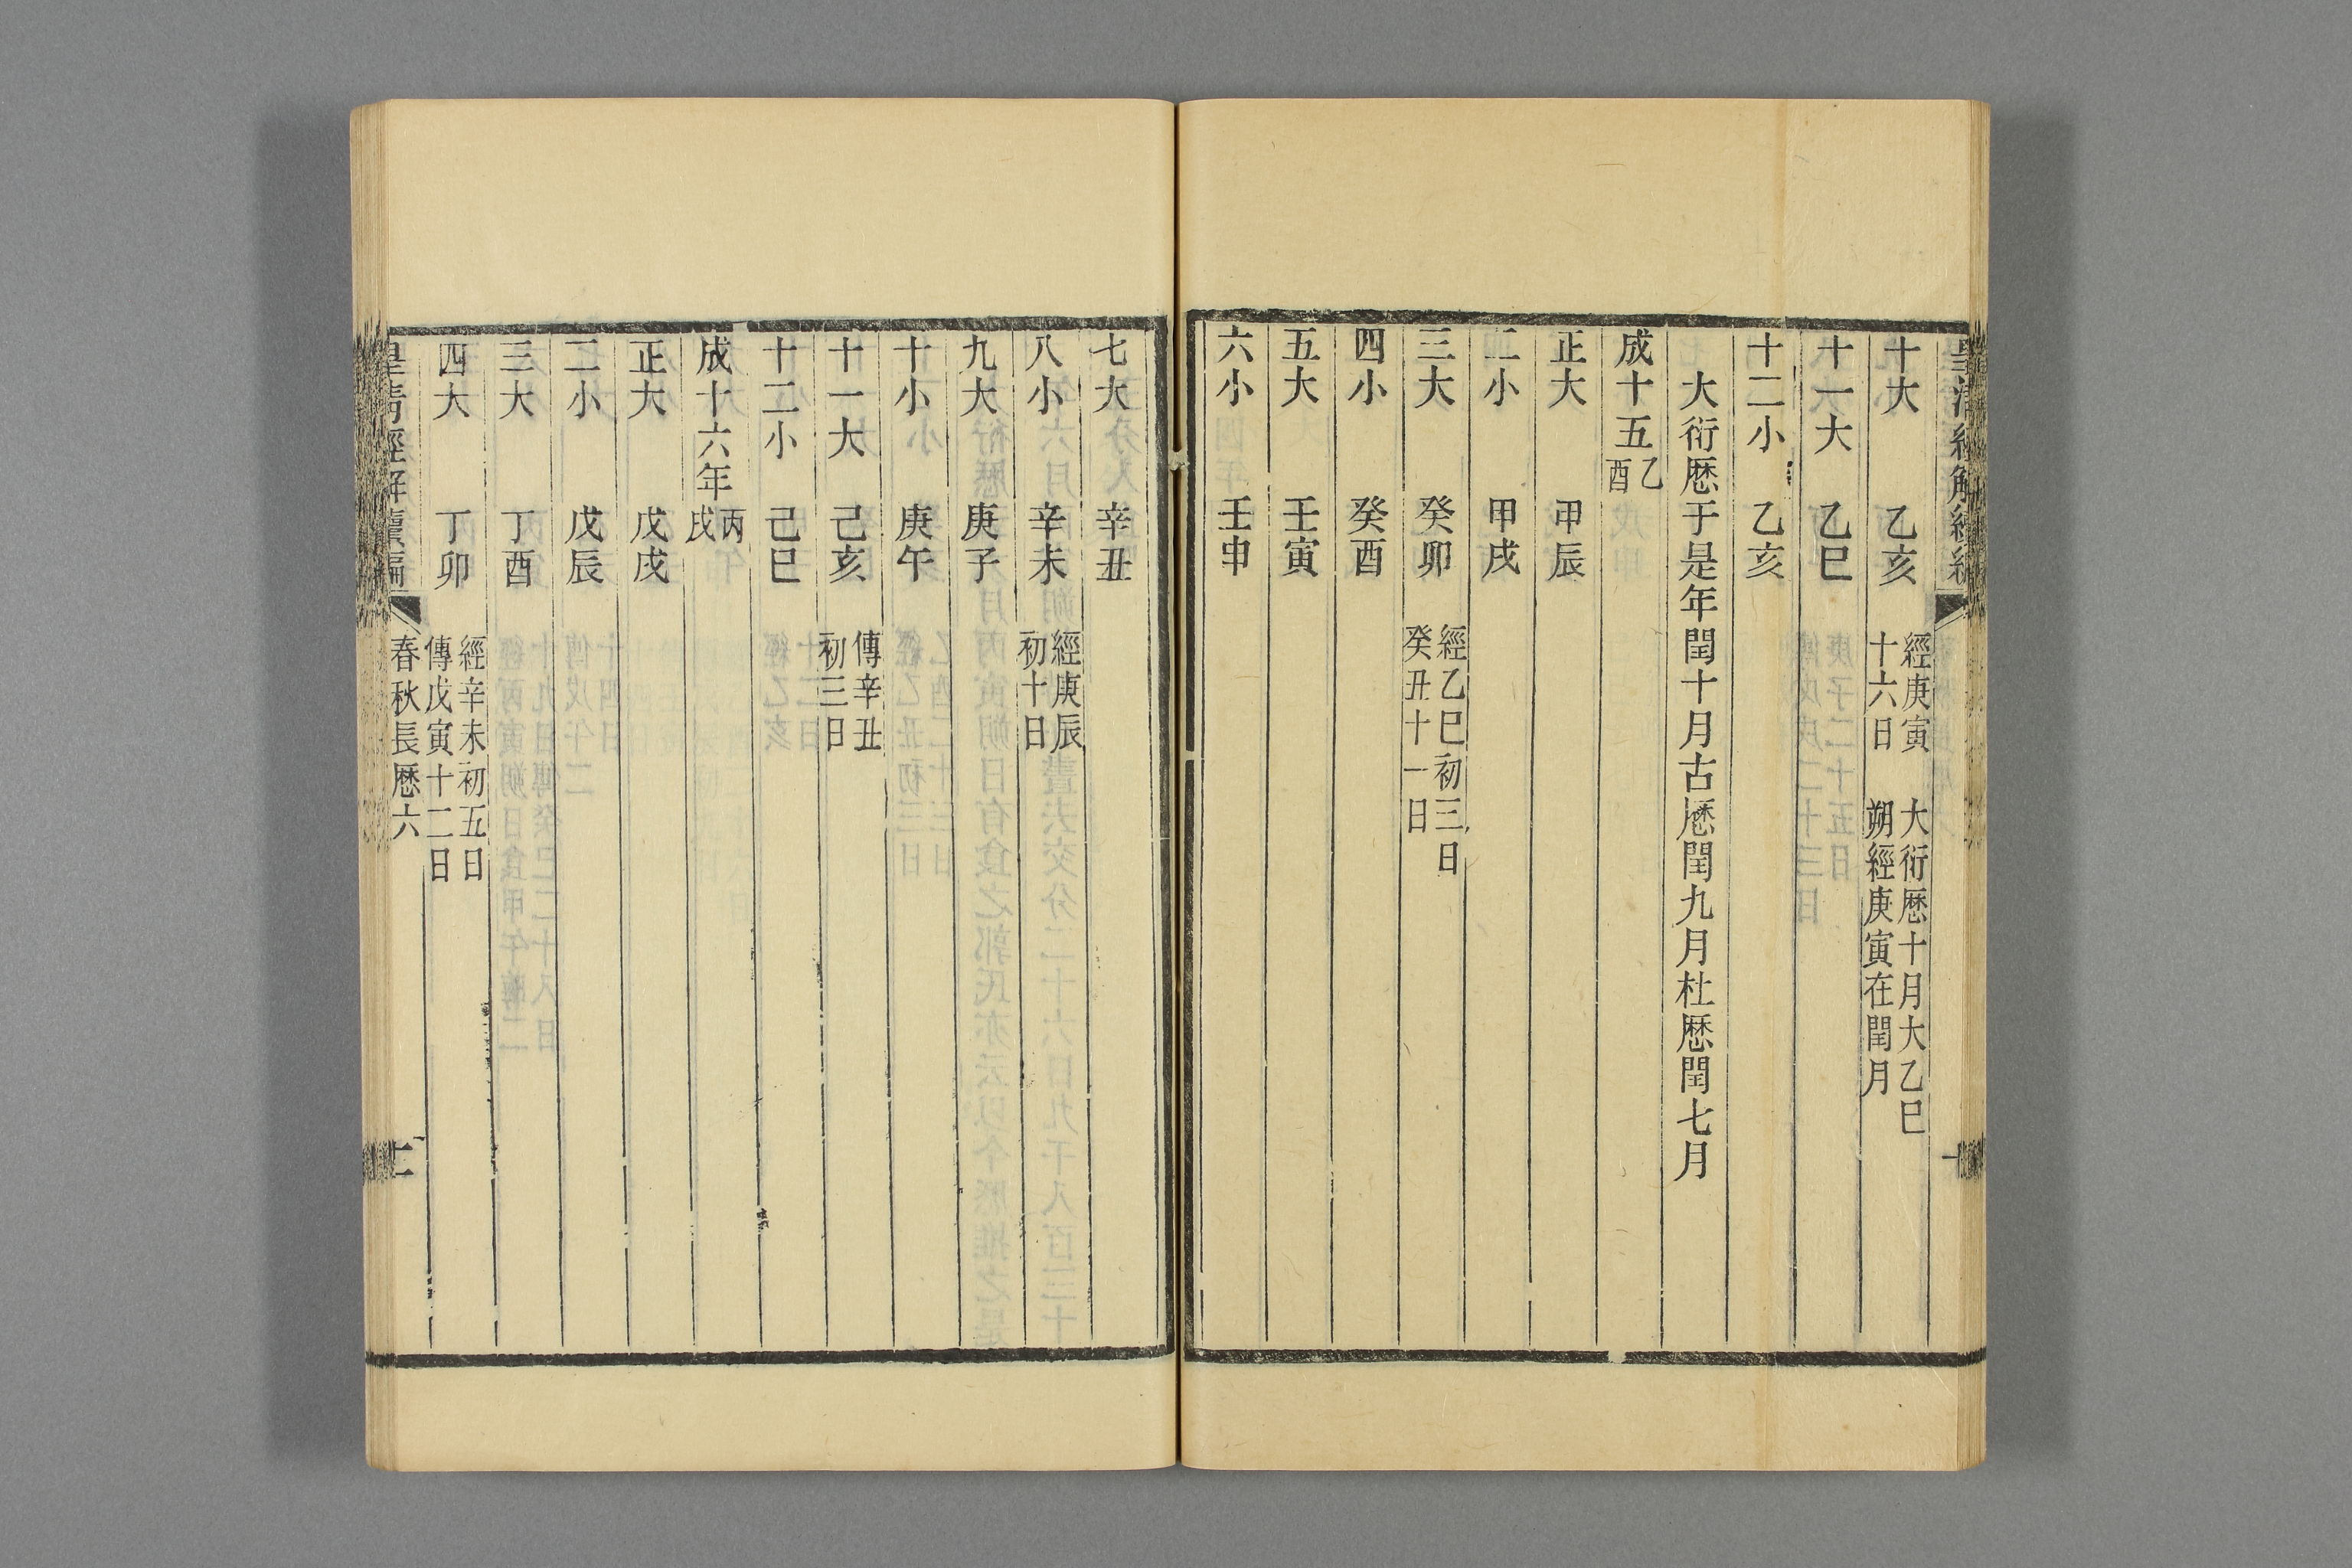 十大 乙亥 經庚寅
十六日 大衍厯十月大乙巳
朔經庚寅在閏月
十一大 乙巳
十二小 乙亥
大衍厯于是年閏十月古厯閏九月杜厯閏七月
成十五乙
酉
正大 甲辰
二小 甲戌
三大 癸卯 經乙巳初三日
癸丑十一日
四小 癸酉
五大 壬寅
六小 壬申
七大 辛丑
八小 辛未 經庚辰
初十日
九大 庚子
十小 庚午
十一大 己亥 傳辛丑
初三日
十二小 己巳
成十六年丙
戌
正大 戊戌
二小 戊辰
三大 丁酉
四大 丁卯 經辛未初五日
傳戊寅十二日
皇清經解續編 春秋長厯六